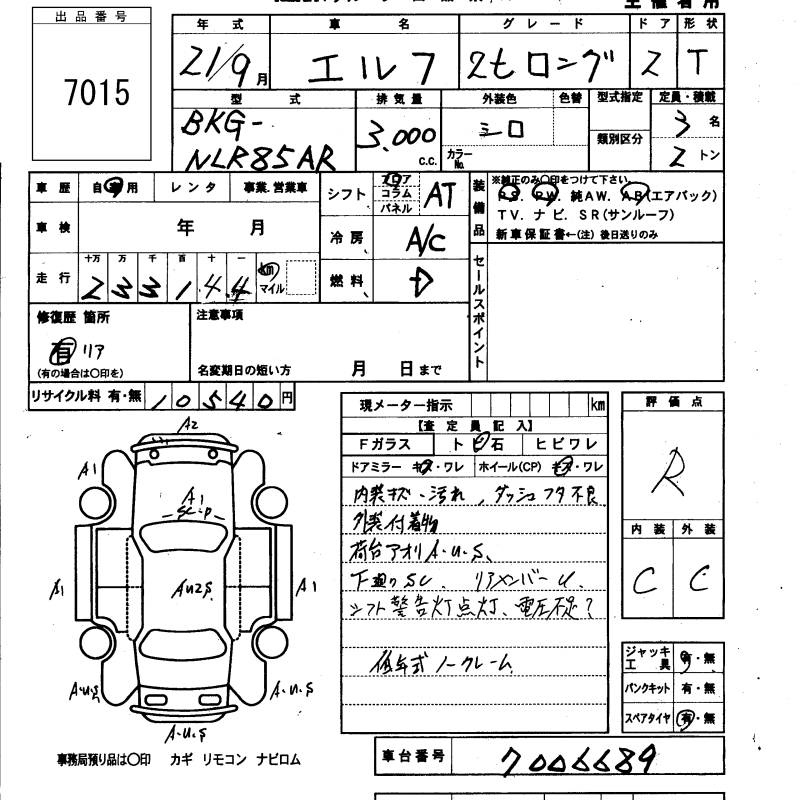 出品番号
7015
年式 車名 グレード ドア 形状
21/9月 エルフ 2tロング 2 T
型式 排気量 外装色 色替 型式指定 定員・積載
BKG-
NLR85AR
3.000 c.c.
シロ
カラーNo.
類別区分
3 名
2 トン
車歴 自家用 レンタ 事業.営業車
シフト フロア コラム パネル AT
装備品
※純正のみ○印をつけて下さい。
PS. PW. 純AW. AB(エアバック)
TV. ナビ. SR(サンルーフ)
新車保証書←(注) 後日送りのみ
車検 年 月
冷房 A/C
走行 十万 万 千 百 十 一
2 3 3 1 4 4 km マイル
燃料 D
セールスポイント
修復歴 箇所
有 リア
(有の場合は○印を)
注意事項
名変期日の短い方 月 日まで
リサイクル料 有・無 10540 円
現メーター指示 km
【査定員記入】
Fガラス トビ石 ヒビワレ
ドアミラー キズ・ワレ ホイール(CP) キズ・ワレ
内装キズ・汚れ、ダッシュフタ不良
外装付着物
荷台アオリ A.U.S、
下廻りSC. リアメンバーU.
シフト警告灯点灯、電圧不足?
低年式ノークレーム
評価点
R
内装 外装
C C
A2
A1
A1
SC.P
AU2S
A1
A1
A.U.S
A.U.S
A.U.S
ジャッキ工具 有・無
パンクキット 有・無
スペアタイヤ 有・無
事務局預り品は○印 カギ リモコン ナビロム
車台番号 7006689